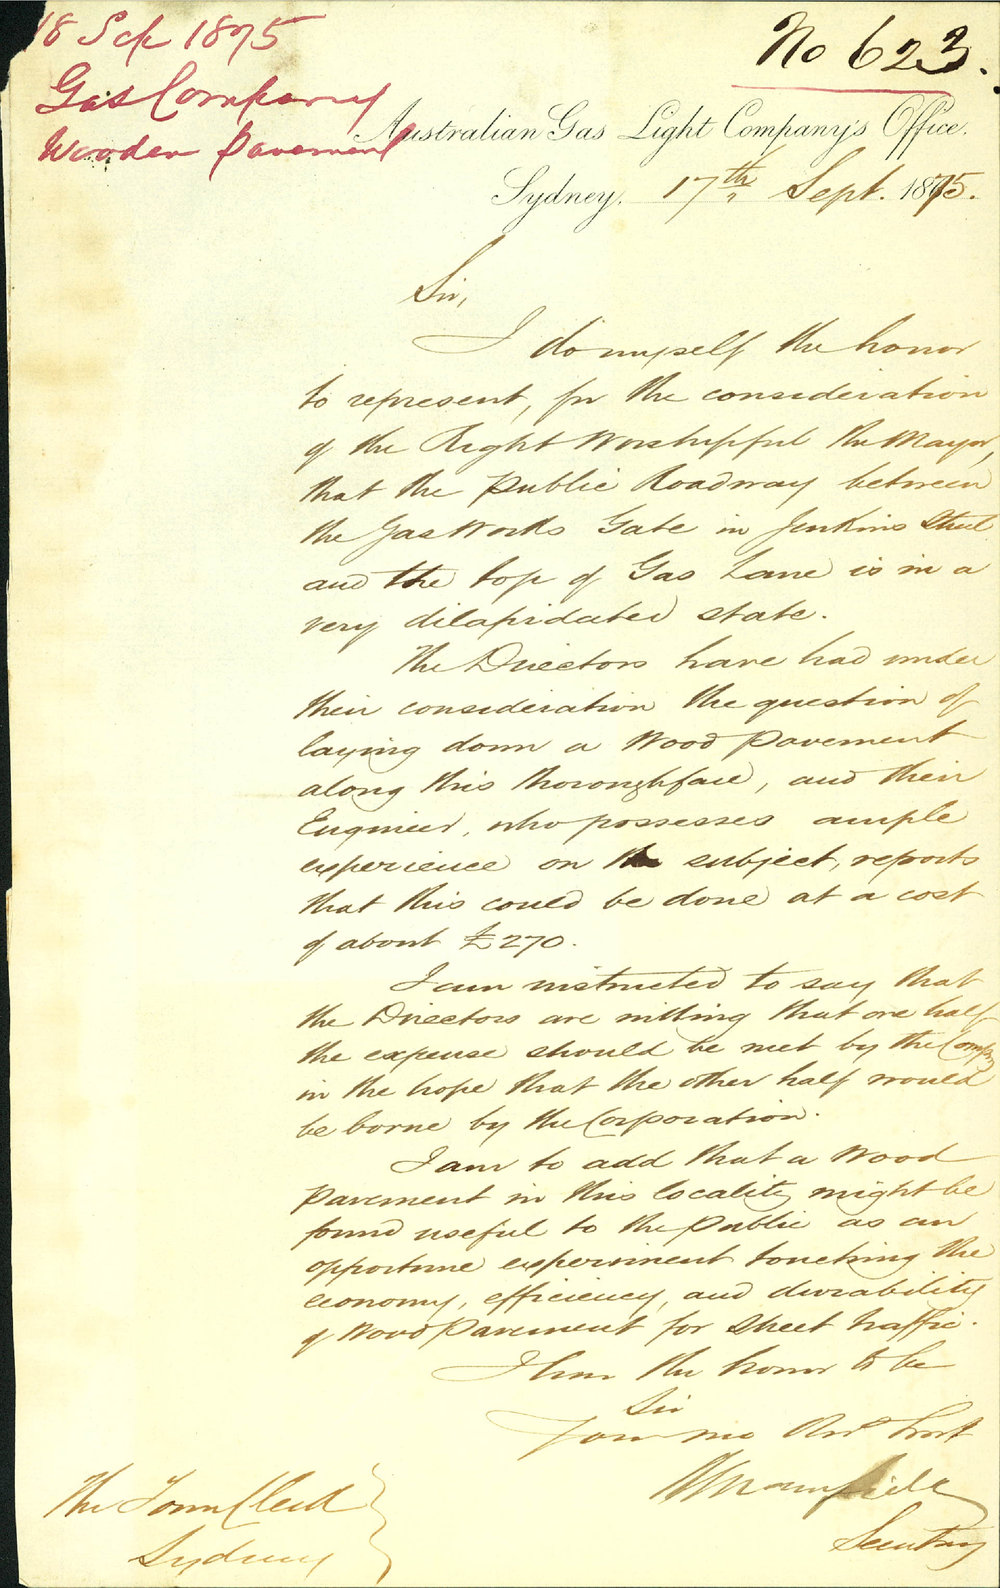 18 Sep 1875
Gas Company
Wooden Pavement
No 623.
Australian Gas Light Company's Office.
Sydney. 17th Sept. 1875.
Sir,
I do myself the honor
to represent, for the consideration
of the Right Worshipful the Mayor,
that the public Roadway between
the Gas Works Gate in Jenkins Street
and the top of Gas Lane is in a
very dilapidated state.
The Directors have had under
their consideration the question of
laying down a Wood pavement
along this thoroughfare, and their
Engineer, who possesses ample
experience on the subject, reports
that this could be done at a cost
of about £270.
I am instructed to say that
the Directors are willing that one half
the expense should be met by the Company
in the hope that the other half would
be borne by the Corporation.
I am to add that a Wood
pavement in this locality might be
found useful to the public as an
opportune experiment touching the
economy, efficiency, and durability
of Wood Pavement for Street traffic.
I have the honor to be
Sir
Your mo
Secretary
The Town Clerk
Sydney